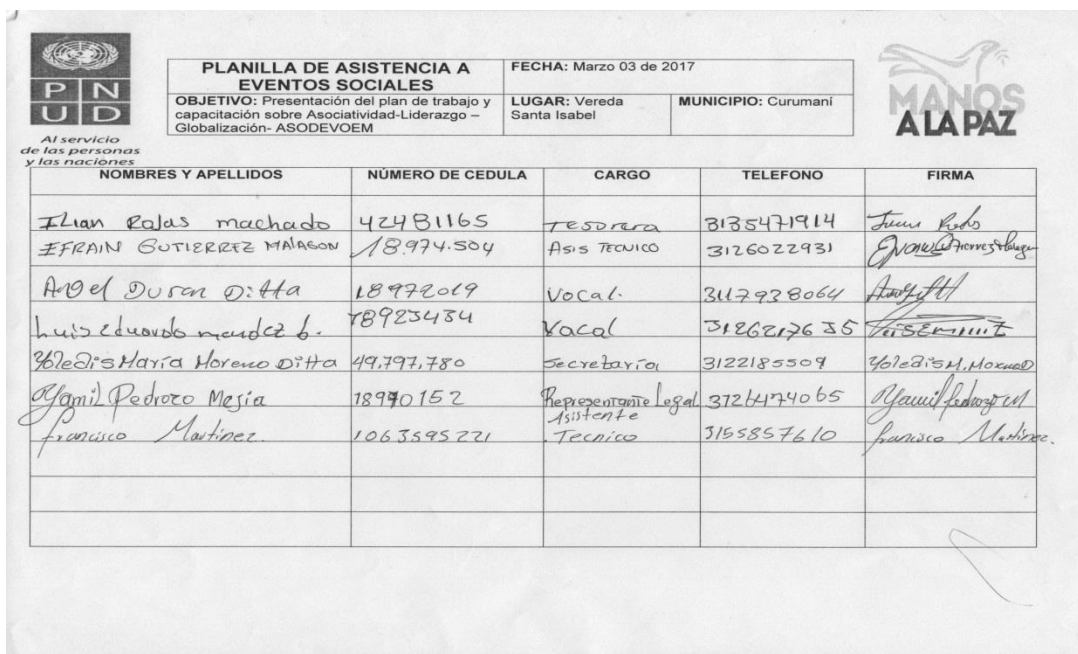 PNUD
Al servicio
de las personas
y las naciones
PLANILLA DE ASISTENCIA A
EVENTOS SOCIALES
FECHA: Marzo 03 de 2017
OBJETIVO: Presentación del plan de trabajo y
capacitación sobre Asociatividad-Liderazgo –
Globalización- ASODEVOEM
LUGAR: Vereda
Santa Isabel
MUNICIPIO: Curumaní
MANOS
A LA PAZ
NOMBRES Y APELLIDOS NÚMERO DE CEDULA CARGO TELEFONO FIRMA
ILian Rojas machado 42481165 Tesorera 3135471914
EFRAIN GUTIERREZ MALAGON 18.974.504 ASIS TECNICO 3126022931
Angel Duran Ditta 18972019 Vocal. 3117928064
Luis eduardo mendez b. 18923434 Vocal
Yoledis María Moreno Ditta 49.797.780 Secretaría 3122185509 Yoledis M. Moreno D
Yamil Pedrozo Mejia 18970152 Representante Legal Yamil Pedrozo M
francisco Martinez. 1063595221 Asistente Tecnico 3155857610 francisco Martinez.